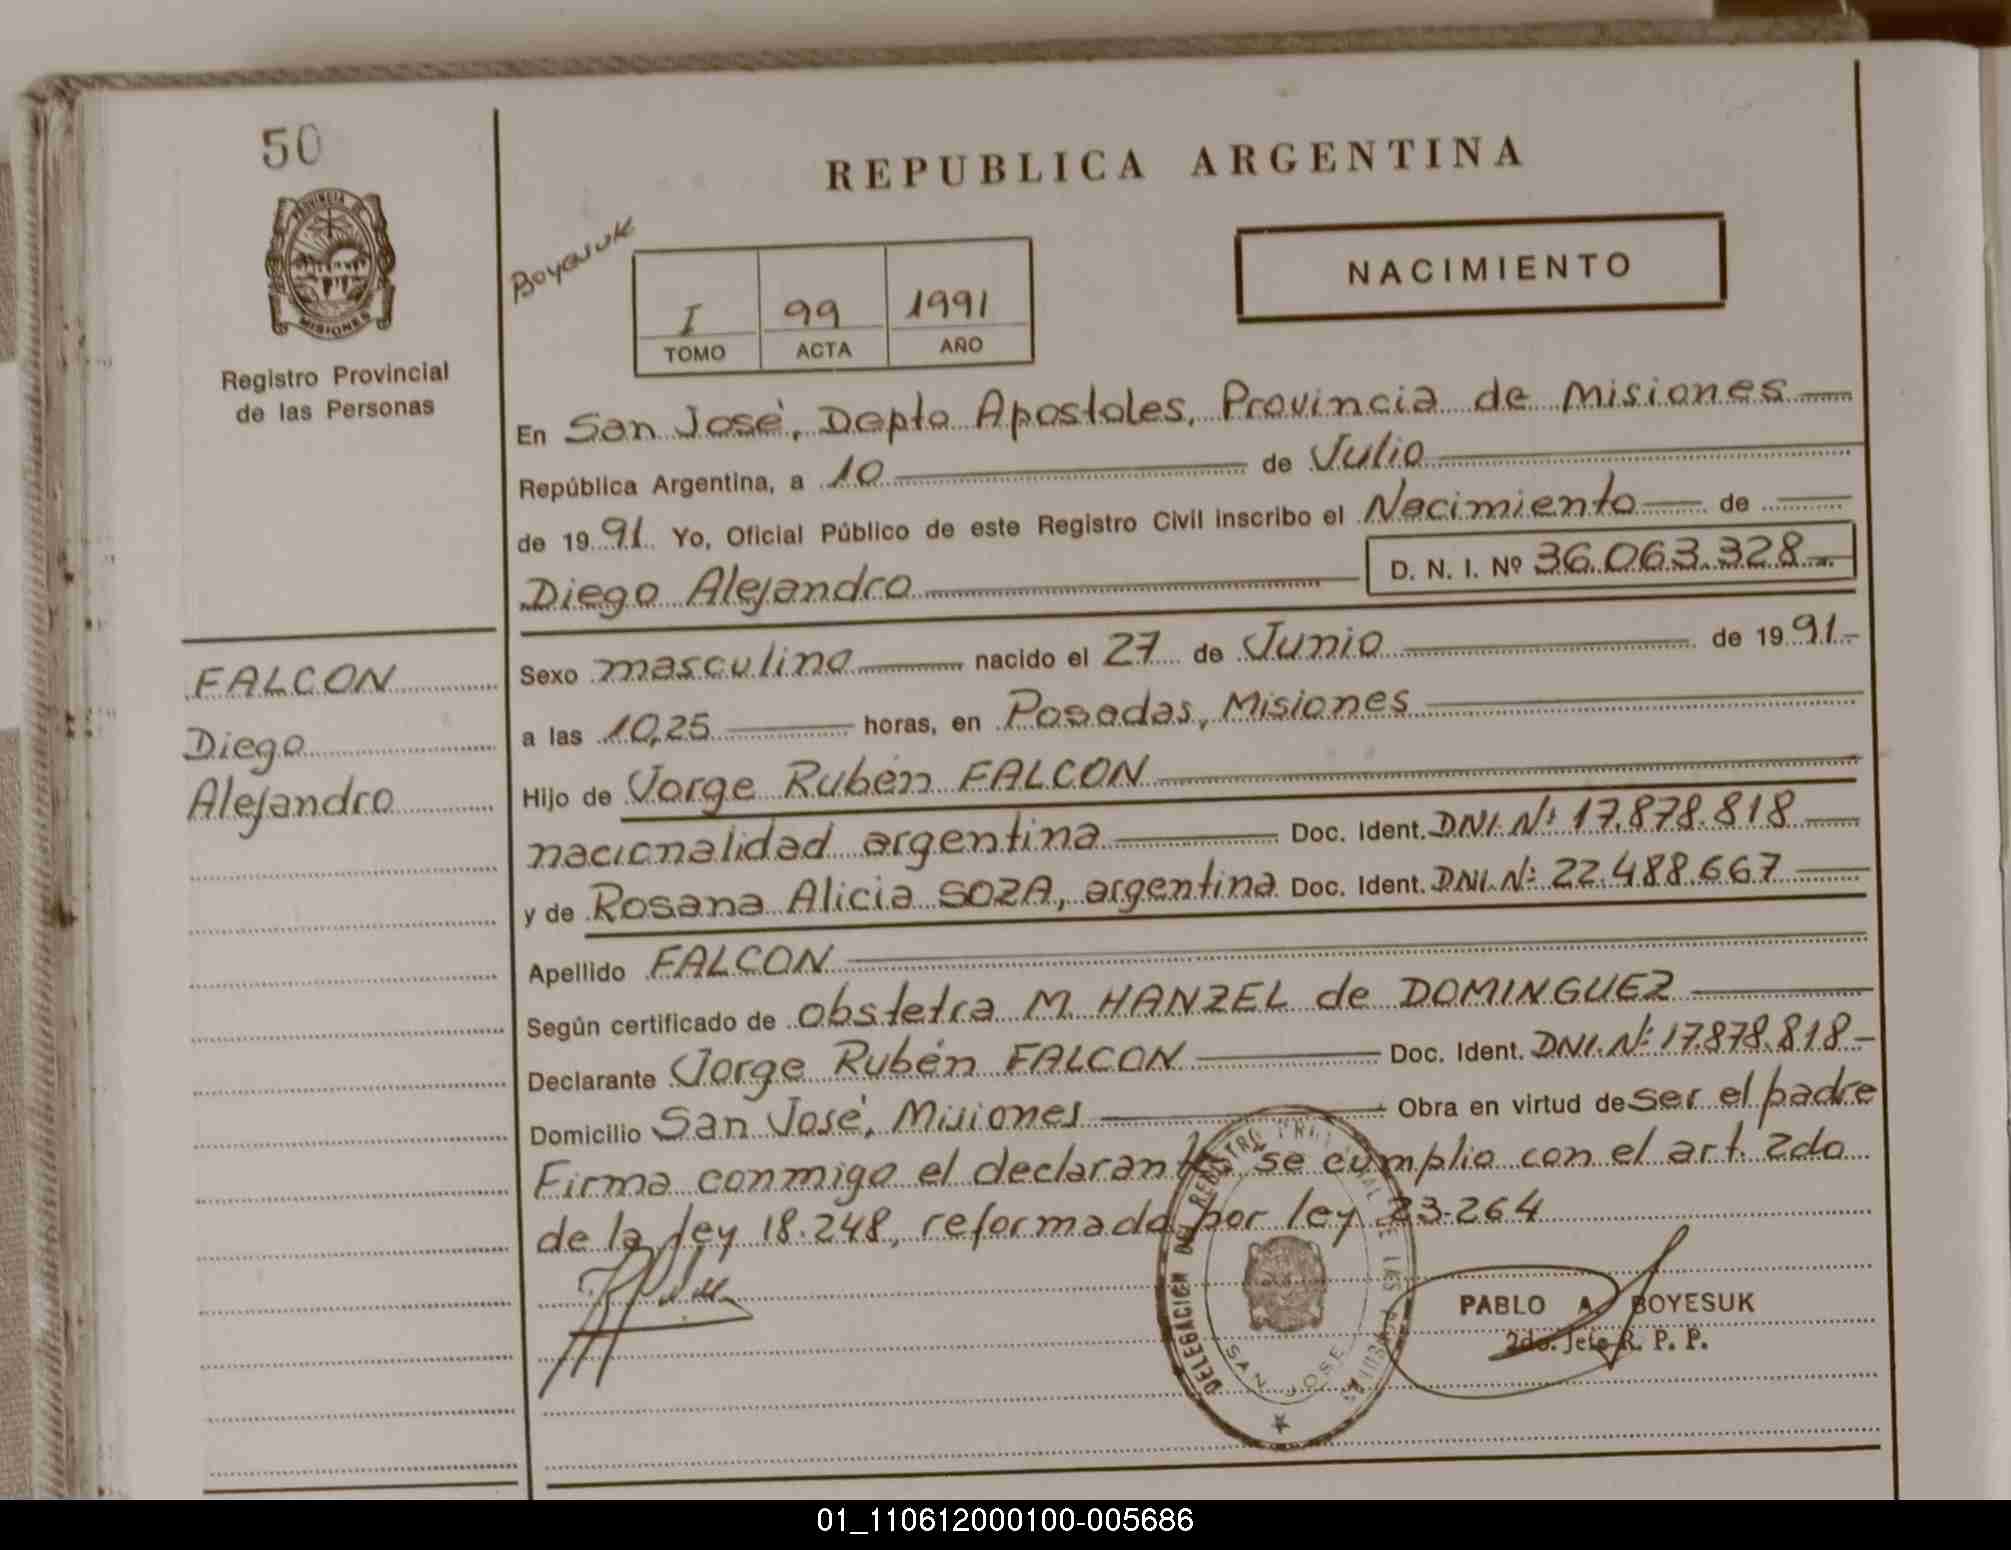 50
PROVINCIA DE
MISIONES
Registro Provincial
de las Personas
FALCON
Diego
Alejandro
REPUBLICA ARGENTINA
Boyesuk
I 99 1991
TOMO ACTA AÑO
NACIMIENTO
En San José, Depto Apostoles, Provincia de Misiones
República Argentina, a 10 de Julio
de 19 91 Yo, Oficial Público de este Registro Civil inscribo el Nacimiento de
Diego Alejandro D. N. I. Nº 36.063.328
Sexo masculino nacido el 27 de Junio de 19 91
a las 10,25 horas, en Posadas, Misiones
Hijo de Jorge Rubén FALCON
nacionalidad argentina Doc. Ident. DNI. Nº 17.878.818
y de Rosana Alicia SOZA, argentina Doc. Ident. DNI. Nº 22.488.667
Apellido FALCON
Según certificado de obstetra M. HANZEL de DOMINGUEZ
Declarante Jorge Rubén FALCON Doc. Ident. DNI. Nº 17.878.818
Domicilio San José, Misiones Obra en virtud de ser el padre
Firma conmigo el declarante se cumplio con el art. 2do
de la ley 18.248, reformada por ley 23-264
DELEGACION DEL REGISTRO PROVINCIAL DE LAS PERSONAS
SAN JOSE
PABLO A. BOYESUK
2do. Jefe R. P. P.
01_110612000100-005686